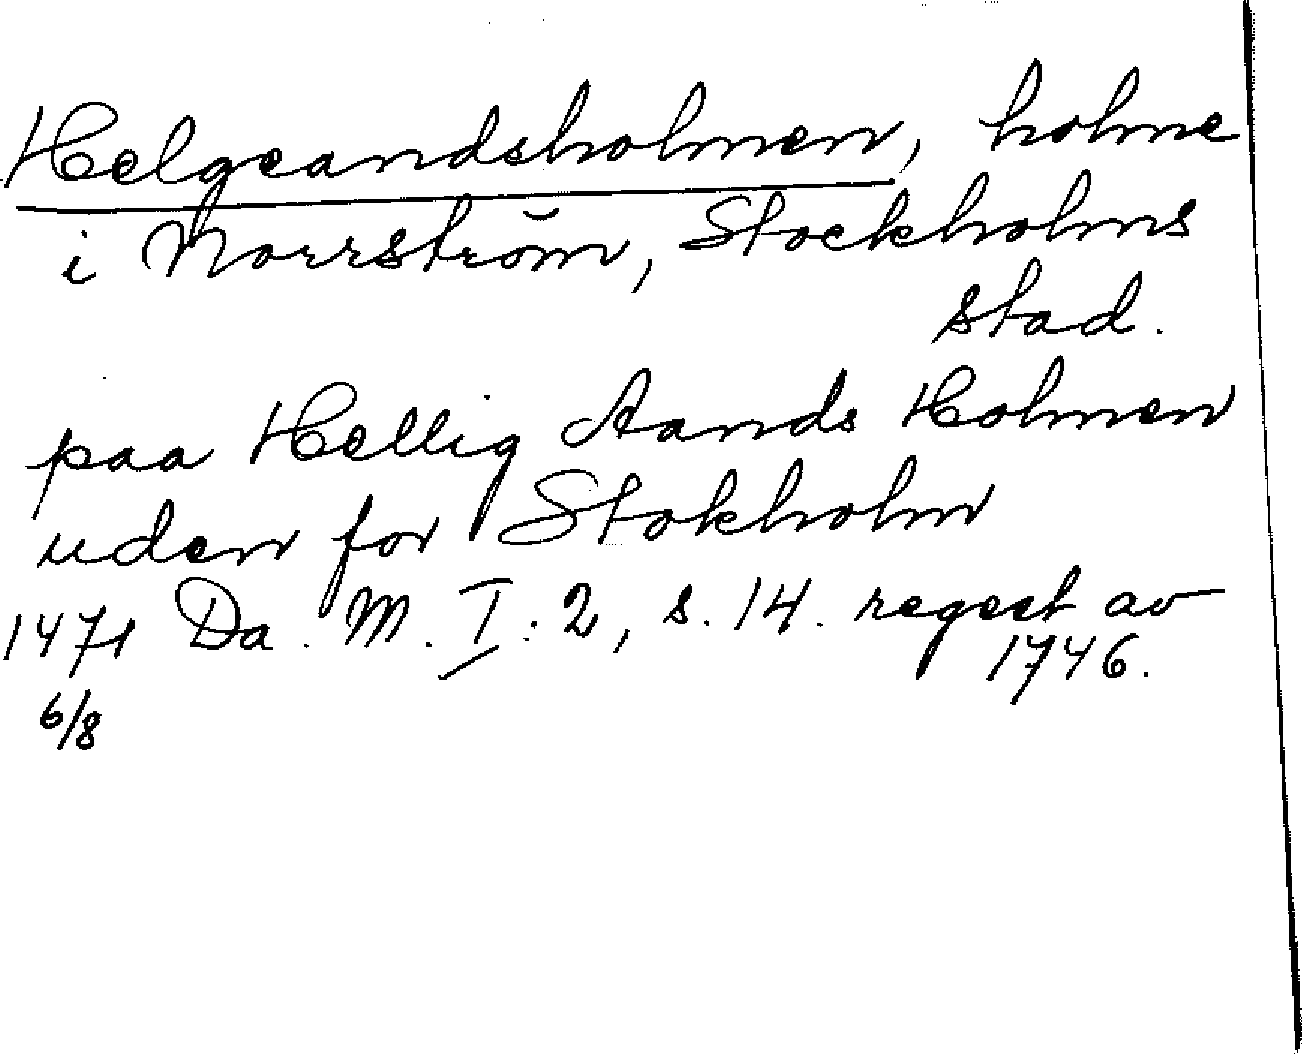 Helgeandsholmen, holme
i Norrström, Stockholms
stad.
paa Hellig Aands Holmen
uden for Stokholm
1471 Da. M. I. 2, s. 14. regest av
1746.
6/8